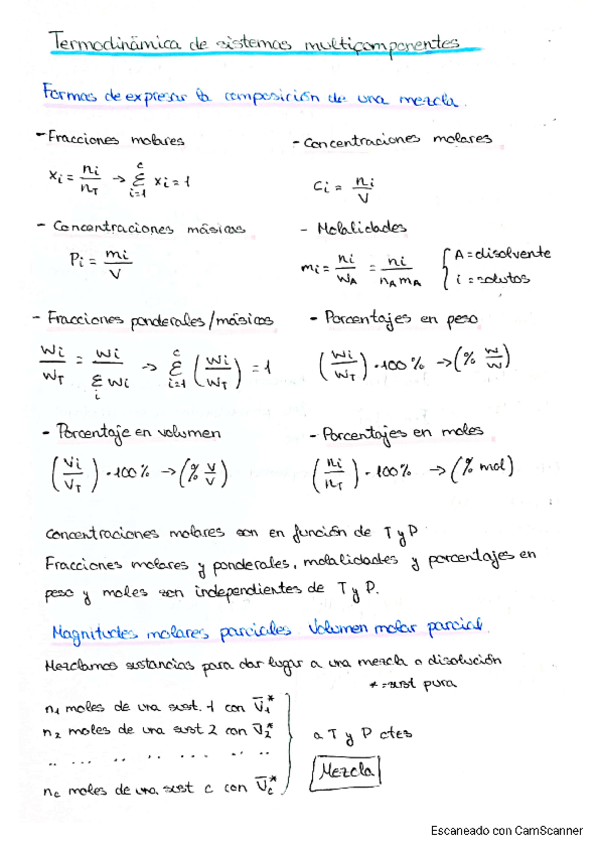 Termodinámica de sistemas multicomponentes
Formas de expresar la composición de una mezcla.
- Fracciones molares
xi = ni / nT → Σ(i=1, c) xi = 1
- Concentraciones molares
ci = ni / V
- Concentraciones másicas
Pi = mi / V
- Molalidades
mi = ni / WA = ni / nA mA { A = disolvente
i = solutos
- Fracciones ponderales/másicas
Wi / WT = Wi / Σi Wi → Σ(i=1, c) (Wi / WT) = 1
- Porcentajes en peso
(Wi / WT) · 100% → (% w/w)
- Porcentaje en volumen
(Vi / VT) · 100% → (% V/V)
- Porcentajes en moles
(ni / nT) · 100% → (% mol)
Concentraciones molares son en función de T y P
Fracciones molares y ponderales, molalidades y porcentajes en
peso y moles son independientes de T y P.
Magnitudes molares parciales. Volumen molar parcial.
Mezclamos sustancias para dar lugar a una mezcla o disolución
* = sust pura
n1 moles de una sust. 1 con V̄1*
n2 moles de una sust 2 con V̄2*
.. ... .. .. .. .. .. ..
nc moles de una sust c con V̄c*
a T y P ctes
Mezcla
Escaneado con CamScanner